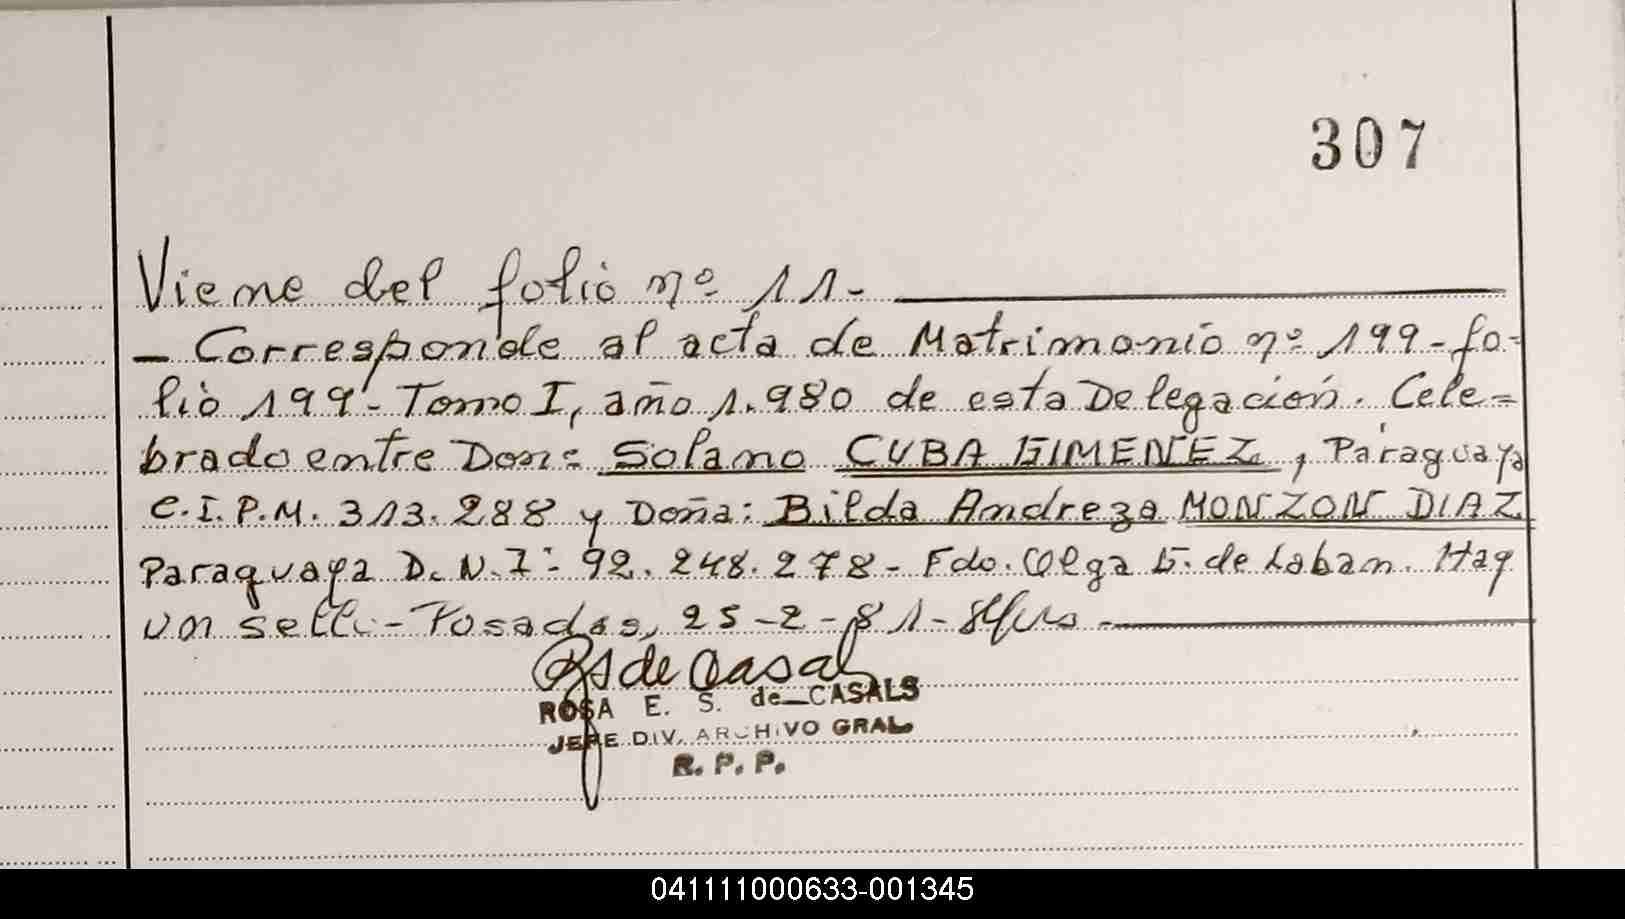 307
Viene del folio nº 11-
- Corresponde al acta de Matrimonio nº 199-fo-
lio 199-Tomo I, año 1.980 de esta Delegación. Cele=
brado entre Don: Solano CUBA GIMENEZ, Paraguaya
C.I.P.M. 313.288 y Doña: Bilda Andreza MONZON DIAZ
Paraguaya D.N.I: 92.248.278- Fdo. Olga G. de Laban. Hay
un sello- Posadas, 25-2-81-
ROSA E. S. de CASALS
JEFE DIV. ARCHIVO GRAL
R. P. P.
041111000633-001345